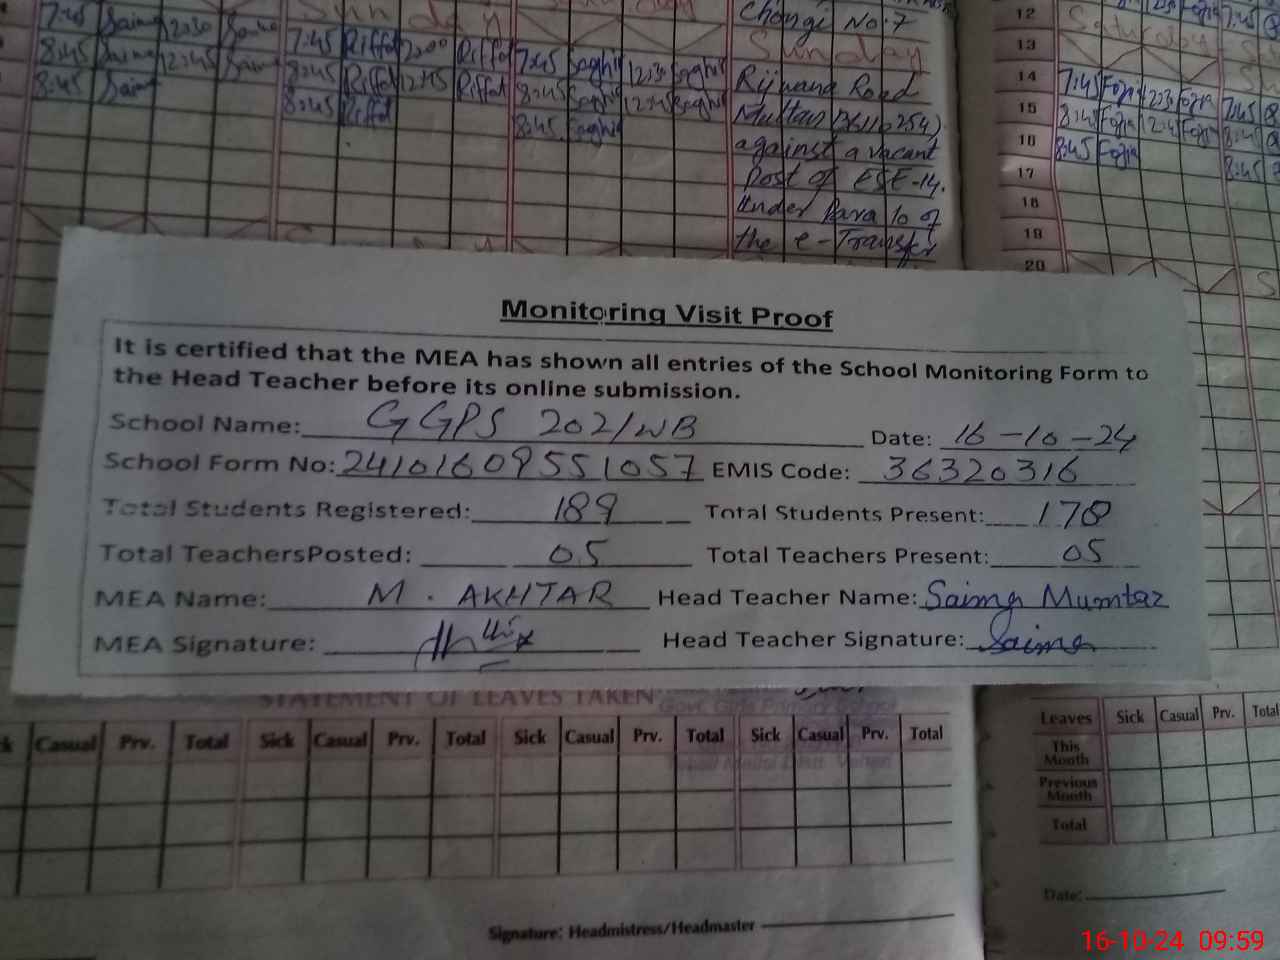 7:45 Saima 12:30 Saima Sunday
8:45 Saima 12:45 Saima 7:45 Riffat 12:00 Riffat 7:45 12:30
8:45 Saima 8:45 Riffat 12:45 Riffat 8:45 12:45
8:45 Riffat 8:45
Change No. 7
Sunday
Road
Multan
against a vacant
Post of ESE-14.
Under Para 10 of
the e-Transfer
12 Saturday
13
14 7:45 12:30 7:45
15 8:45 12:45 8:45
16 8:45 8:45
17
18
19
20
Monitoring Visit Proof
It is certified that the MEA has shown all entries of the School Monitoring Form to
the Head Teacher before its online submission.
School Name: GGPS 202/WB Date: 16-10-24
School Form No: 24101609551057 EMIS Code: 36320316
Total Students Registered: 189 Total Students Present: 178
Total TeachersPosted: 05 Total Teachers Present: 05
MEA Name: M. AKHTAR Head Teacher Name: Saima Mumtaz
MEA Signature: Head Teacher Signature: Saima
STATEMENT OF LEAVES TAKEN
Govt. Girls Primary School
Casual Prv. Total Sick Casual Prv. Total Sick Casual Prv. Total Sick Casual Prv. Total
Leaves Sick Casual Prv. Total
This Month
Previous Month
Total
Date:
Signature: Headmistress/Headmaster
16-10-24 09:59